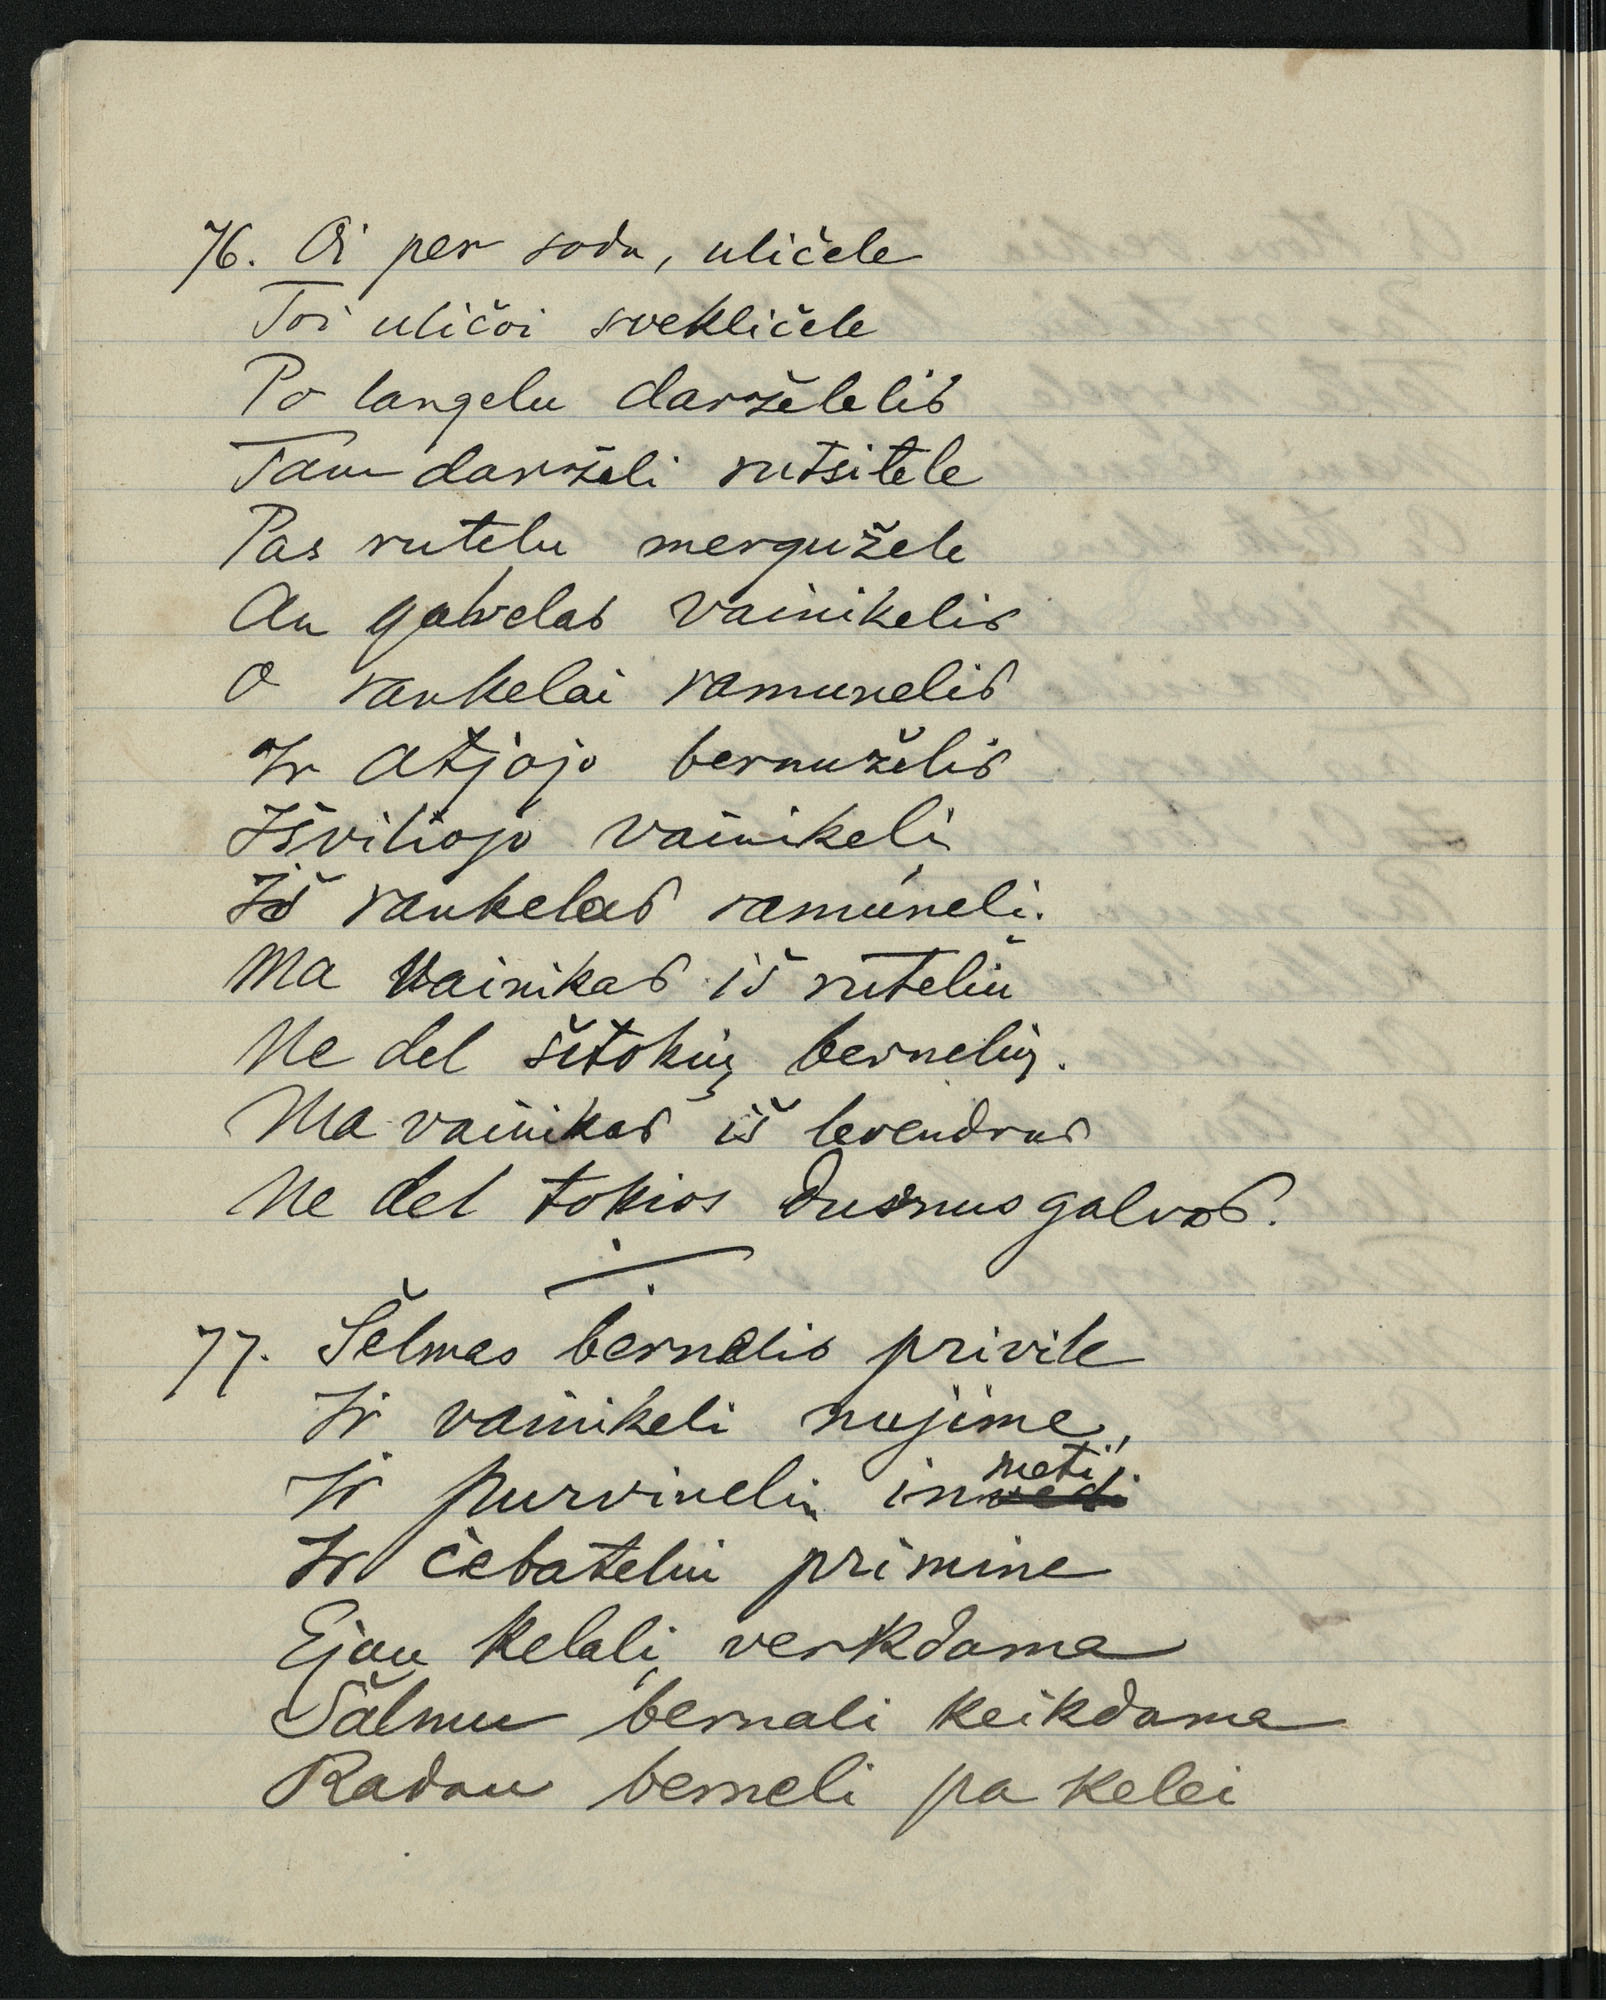 76. Oi per sodu, uličele
Toi uličoi svekličele
Po langelu darželelis
Tam darželi rutsitele
Pas rutelu mergužele
An galvelas vainikelis
O rankelai ramunelis
Ir atjojo bernuželis
Išviliojo vainikelį
Iš rankelas ramunelį.
Ma vainikas iš rūteliu
Ne del šitokių bernelių.
Ma vainikas iš levendras
Ne del tokios durnus galvos.
77. Šelmas bernelis privile
Ir vainikeli nujime,
Ir purvinelin inmeti
Ir čebateliu primine
Ejau kelali verkdama
Šalmu bernali keikdama
Radau berneli pa kelei